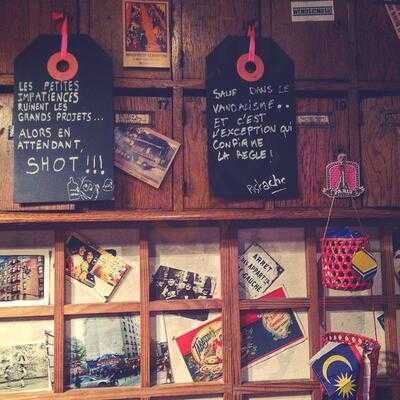 LES PETITES
IMPATIENCES
RUINENT LES
GRANDS PROJETS...
ALORS EN
ATTENDANT,
SHOT!!!
SAUF DANS LE
VANDALISME..
ET C'EST
L'EXCEPTION QUI
CONFIRME
LA REGLE!
ARRET
GAUCHE